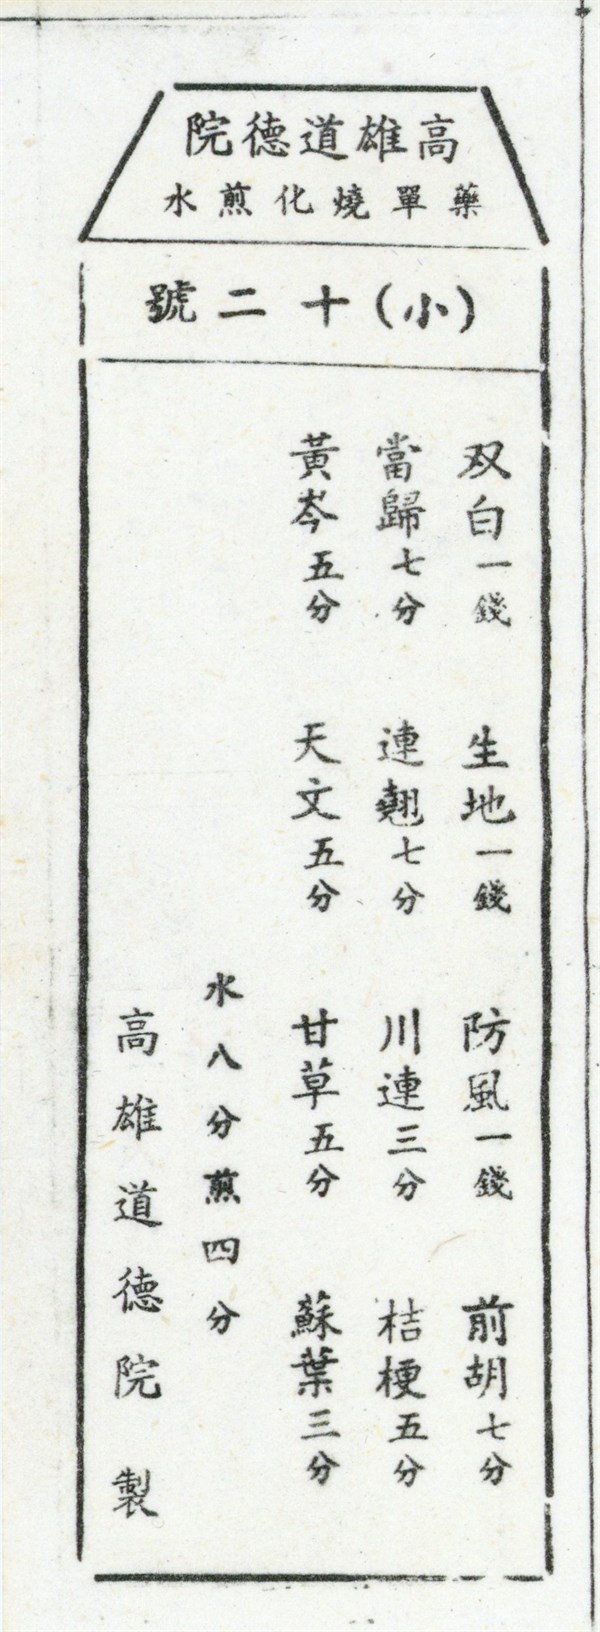 高雄道德院
藥單燒化煎水
(小)十二號
双白一錢 生地一錢 防風一錢 前胡七分
當歸七分 連翹七分 川連三分 桔梗五分
黃岑五分 天文五分 甘草五分 蘇葉三分
水八分煎四分
高雄道德院製